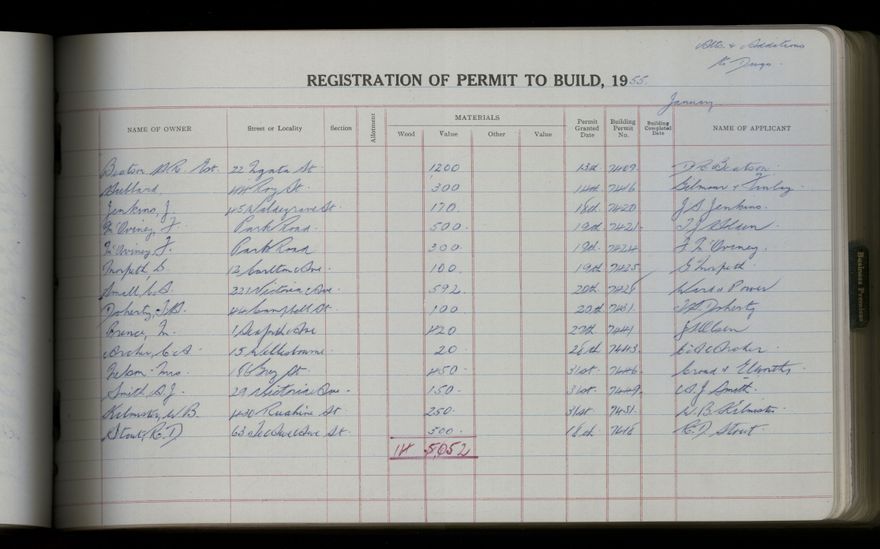 Alts. + Additions
to Dwgs.
REGISTRATION OF PERMIT TO BUILD, 1955.
January
NAME OF OWNER Street or Locality Section Allotment MATERIALS Wood Value Other Value Permit Granted Date Building Permit No. Building Completed Date NAME OF APPLICANT
Beaton, D.R. Est. 22 Ngata St. 1200 13th 7409.
Bullard. Roy St. 300 14th 7416 Gilmour + Finlay
Jenkins, J. 45 Waldegrave St. 170 18th 7420 J. S. Jenkins.
McOviney, F. Park Road. 500 19th 7421. Olsen
McOviney, F. Park Road 300 19th 7424 F. McOviney.
Morpeth, G. 12 Carlton Ave. 100 19th 7425 G Morpeth
Small, C.S. 331 Victoria Ave. 592 20th Ward + Power
Doherty, 44 Campbell St 100 20th 7431. Doherty
Prince, M. 1 Ave 420 27th 7441 Olsen
Archer, C A. 15 Wellesbourne 20 28th 7443. Archer
Nelson Mrs. 186 Grey St. 450 31st 7446.
Smith, A. J. 29 Victoria Ave. 150. 31st 7449. A. J Smith.
Kilmister, W.B. 430 Ruahine St 250. 31st 7451. W. B. Kilmister
Stout, R. D 63 St. 500. 18th 7418 R. D. Stout.
14 5,052
Business Premises